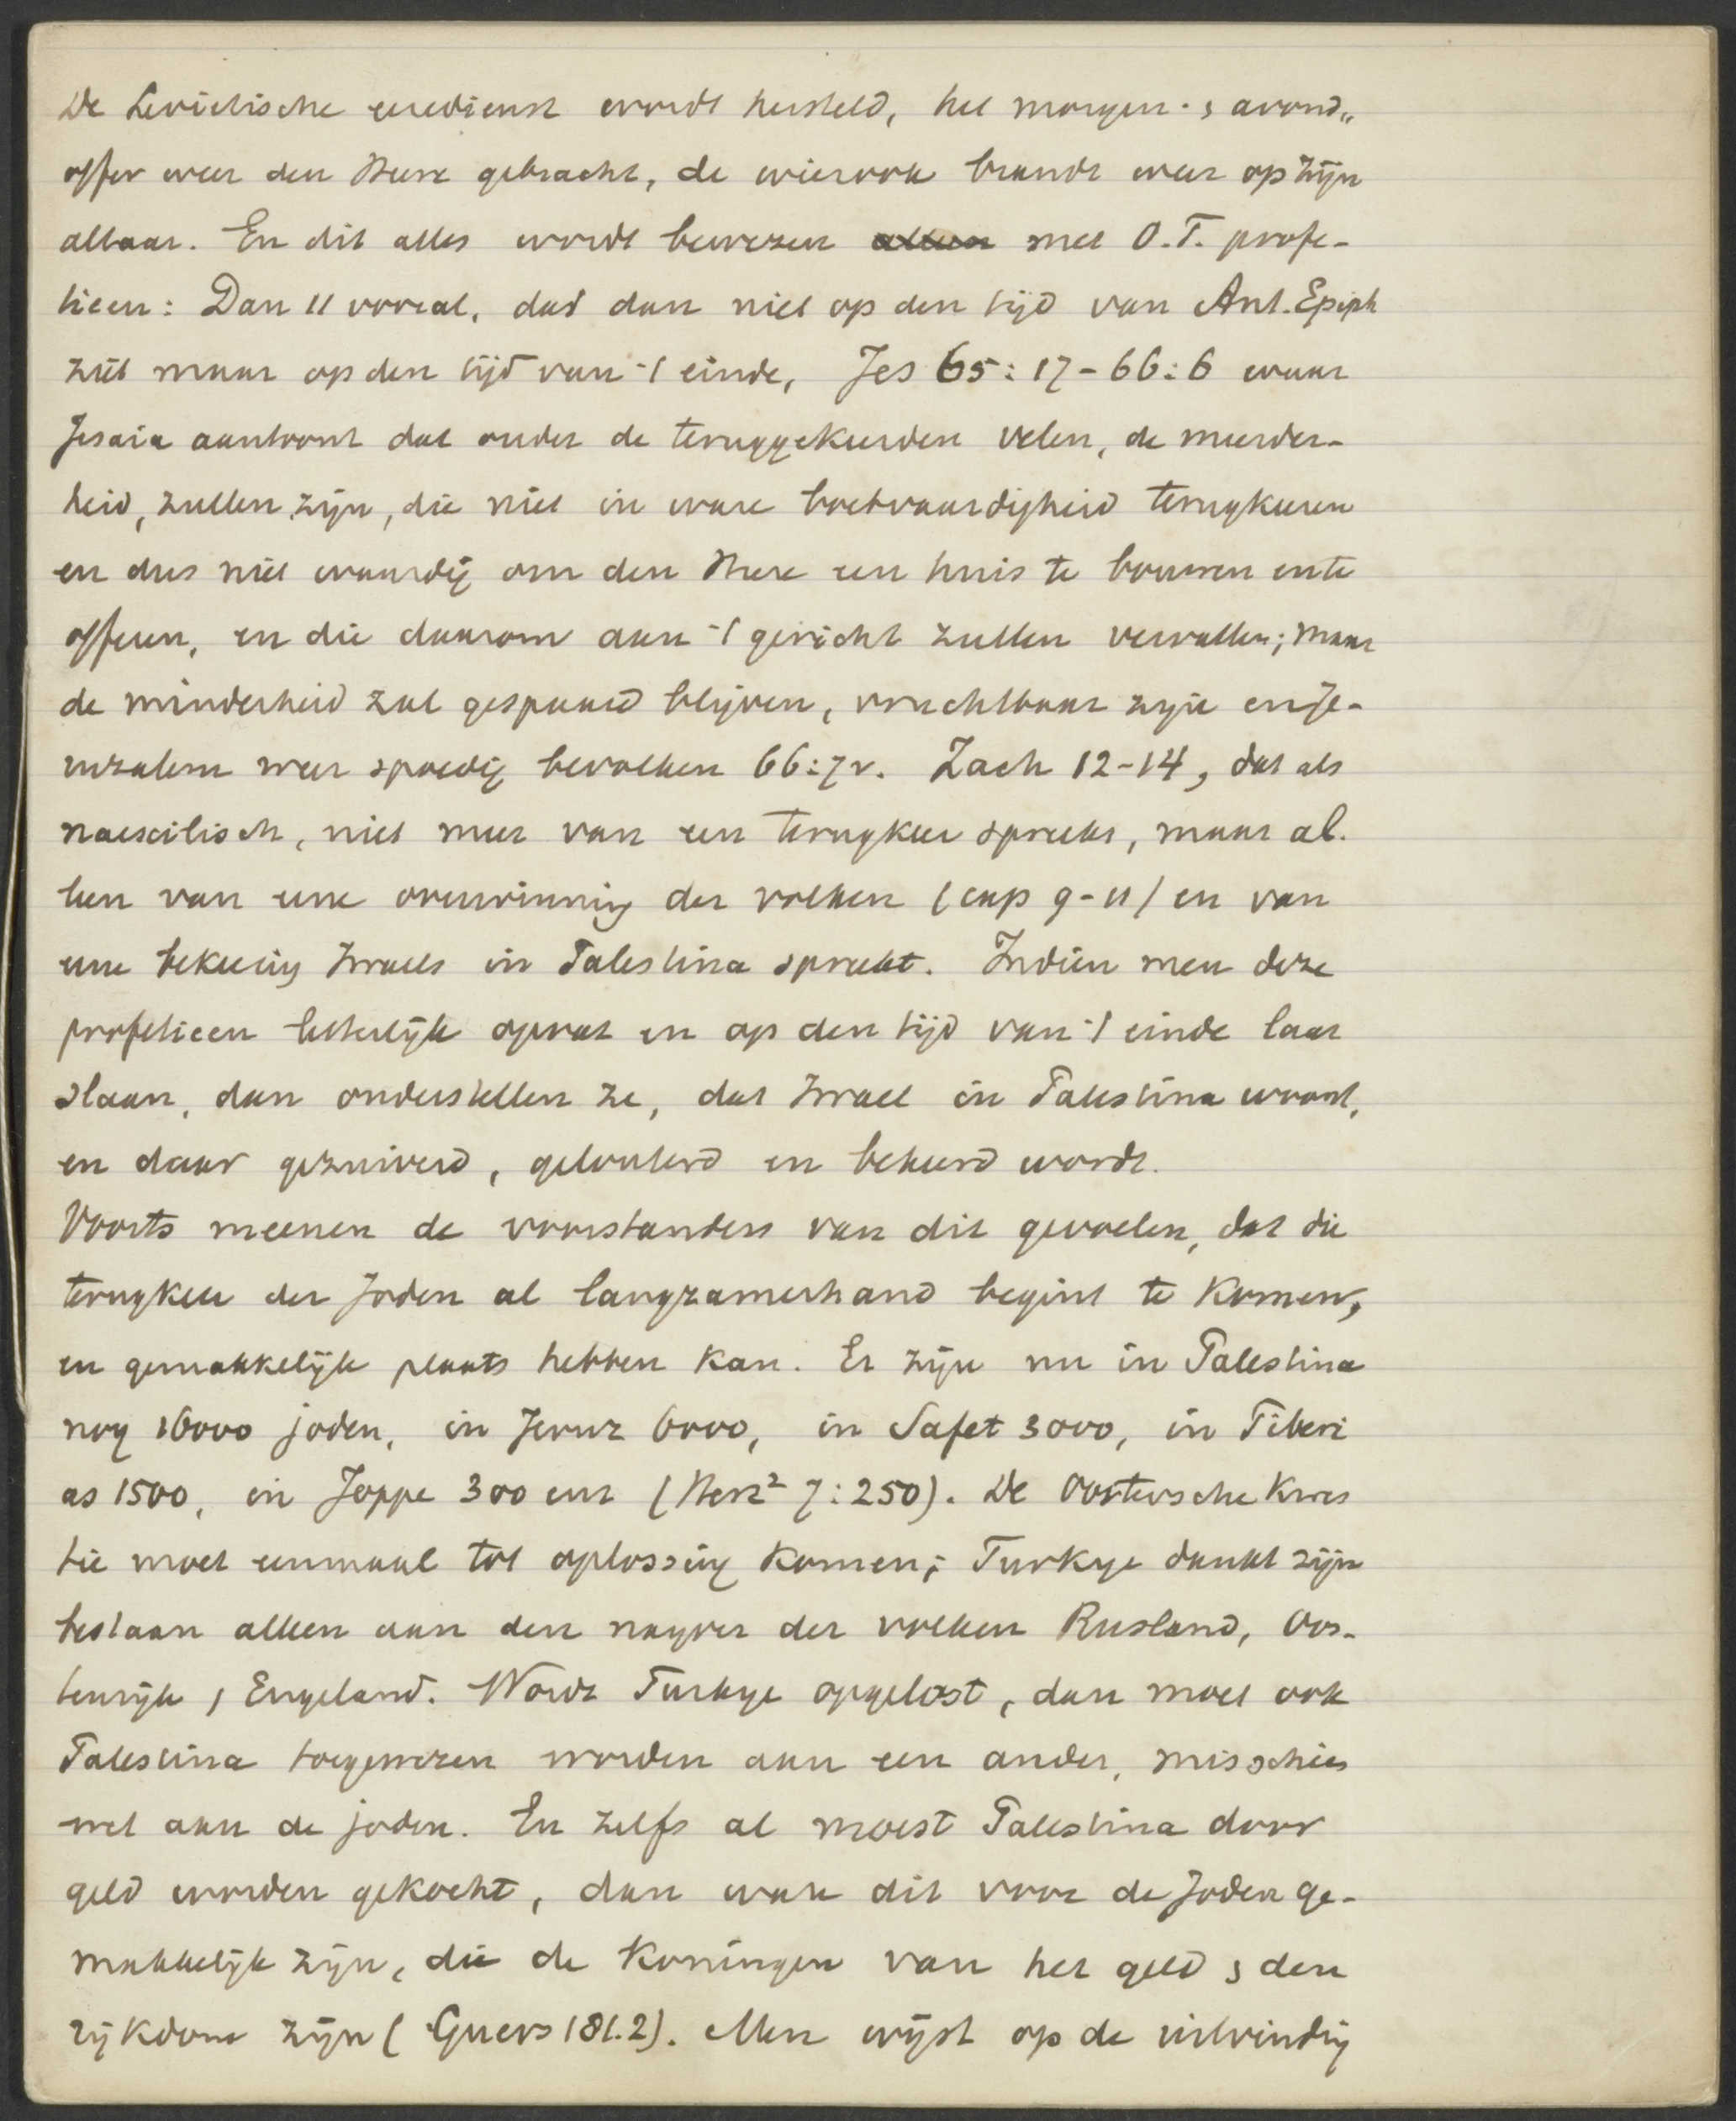 De Levietische eeredienst wordt hersteld, het morgen- & avond„
offer weer den Heere gebracht, de wierook brandt weer op zijn
altaar. En dit alles wordt bewezen met O.T. profe-
tieen: Dan 11 vooral, dat dan niet op den tijd van Ant. Epiph
ziet maar op den tijd van 't einde, Jes 65:17-66:6 waar
Jesaia aantoont dat onder de teruggekeerden velen, de meerder-
heid, zullen zijn, die niet in ware boetvaardigheid terugkeeren
en dus niet waardig om den Heere een huis te bouwen en te
offeren, en die daarom aan 't gericht zullen vervallen; maar
de minderheid zal gespaard blijven, vruchtbaar zijn en Je-
ruzalem weer spoedig bevolken 66:7v. Zach 12-14, dat als
naexilisch, niet meer van een terugkeer spreekt, maar al-
leen van eene overwinning der volken (cap 9-11) en van
eene bekeering Israels in Palestina spreekt. Indien men deze
profetieen letterlijk opvat en op den tijd van 't einde laat
slaan, dan onderstellen ze, dat Israel in Palestina woont,
en daar gezuiverd, gelouterd en bekeerd wordt.
Voorts meenen de voorstanders van dit gevoelen, dat die
terugkeer der Joden al langzamerhand begint te komen,
en gemakkelijk plaats hebben kan. Er zijn nu in Palestina
nog 16000 joden, in Jeruz 6000, in Safet 3000, in Tiberi
as 1500, in Joppe 300 enz (Herz² 7:250). De Oostersche kwes
tie moet eenmaal tot oplossing komen; Turkye dankt zijn
bestaan alleen aan den naijver der volken Rusland, Oos-
tenrijk, Engeland. Wordt Turkye opgelost, dan moet ook
Palestina toegewezen worden aan een ander, misschien
wel aan de joden. En zelfs al moest Palestina door
geld worden gekocht, dan ware dit voor de Joden ge-
makkelijk zijn, die de koningen van het geld & den
rijkdom zijn (Guers 181.2). Men wijst op de uitvinding